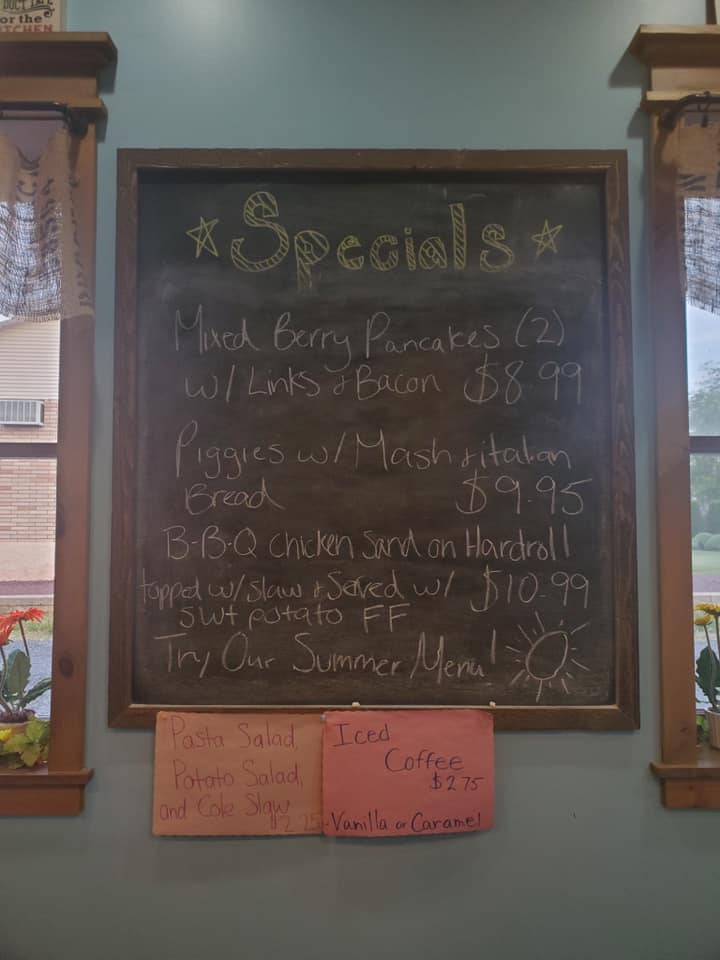 or the
KITCHEN
Specials
Mixed Berry Pancakes (2)
w/ Links & Bacon $8.99
Piggies w/ Mash & italian
Bread $9.95
B-B-Q Chicken Sand on Hardroll
topped w/ slaw & Served w/ $10.99
swt potato FF
Try Our Summer Menu!
Pasta Salad,
Potato Salad,
and Cole Slaw
$2.25
Iced
Coffee
$2.75
-Vanilla or Caramel